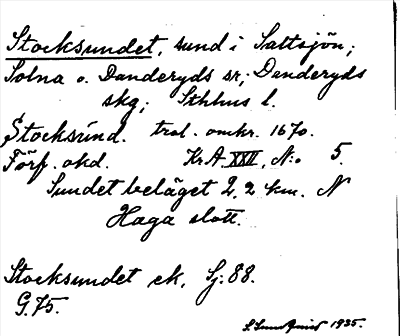 Stocksundet, sund i Saltsjön;
Solna o. Danderyds sr; Danderyds
skg; Sthlms l.
Stocksund. trol. omkr. 1670.
Förf. okd. Kr.A XXII, N:o 5.
Sundet beläget 2,2 km. N
Haga slott.
Stocksundet ek, Sj: 88.
G. 75.
1935.